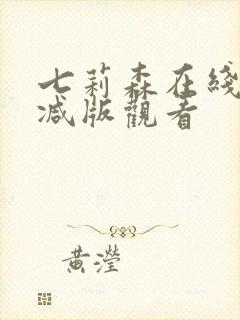 七莉森在綫
减版觀看
黄瀅